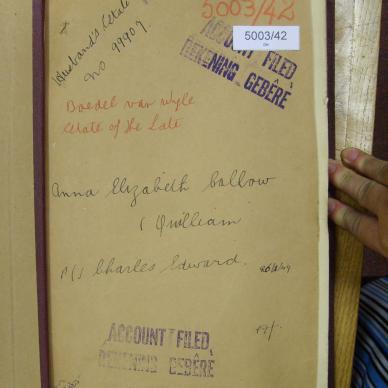 5003/42
5003/42
Husband's Estate
No 99907
ACCOUNT FILED
REKENING GEBÊRE
Boedel van wyle
Estate of the Late
Anna Elizabeth Callow
( Quilliam
Charles Edward.
ACCOUNT FILED
REKENING GEBÊRE